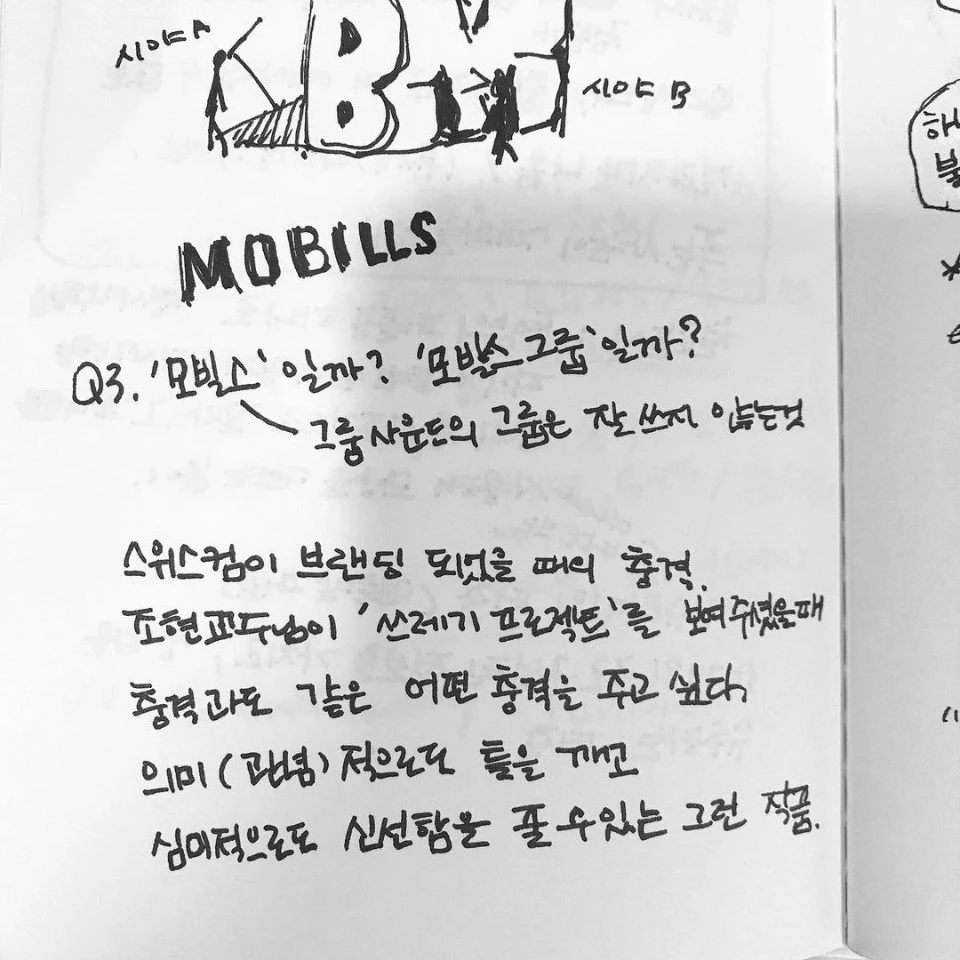 시야 A
BM
시야 B
MOBILLS
Q3. '모빌스' 일까? '모빌스그룹' 일까?
그룹사운드의 그룹은 잘 쓰지 않는것
스위스컴이 브랜딩 되었을 때의 충격.
조현교수님이 '쓰레기 프로젝트'를 보여주셨을때
충격과도 같은 어떤 충격을 주고 싶다.
의미(관념)적으로도 틀을 깨고
심미적으로도 신선함을 줄 수 있는 그런 작품.